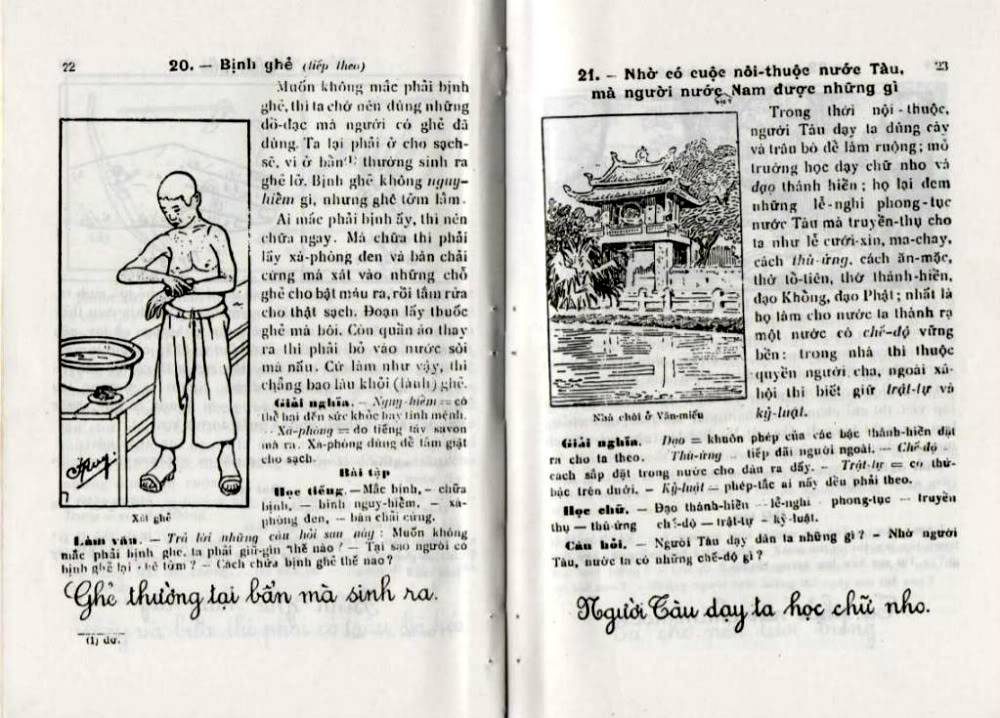 22
20. — Bịnh ghẻ (tiếp theo)
Muốn không mắc phải bịnh
ghẻ, thì ta chớ nên dùng những
đồ-đạc mà người có ghẻ đã
dùng. Ta lại phải ở cho sạch-
sẽ, vì ở bẩn(1) thường sinh ra
ghẻ lở. Bịnh ghẻ không nguy-
hiểm gì, nhưng ghê tởm lắm.
Ai mắc phải bịnh ấy, thì nên
chữa ngay. Mà chữa thì phải
lấy xà-phòng đen và bàn chải
cứng mà xát vào những chỗ
ghẻ cho bật máu ra, rồi tắm rửa
cho thật sạch. Đoạn lấy thuốc
ghẻ mà bôi. Còn quần áo thay
ra thì phải bỏ vào nước sôi
mà nấu. Cứ làm như vậy, thì
chẳng bao lâu khỏi (lành) ghẻ.
Giải nghĩa. — Nguy-hiểm = có
thể hại đến sức khỏe hay tính mệnh.
- Xà-phòng = do tiếng tây savon
mà ra. Xà-phòng dùng để tắm giặt
cho sạch.
Bài tập
Học tiếng. — Mắc bịnh, – chữa
bịnh, — bịnh nguy-hiểm. – xà-
phòng đen, — bàn chải cứng.
Xát ghẻ
Làm văn. — Trả lời những câu hỏi sau này : Muốn không
mắc phải bịnh ghẻ, ta phải giữ-gìn thế nào ? — Tại sao người có
bịnh ghẻ lại ghê tởm ? — Cách chữa bịnh ghẻ thế nào ?
Ghẻ thường tại bẩn mà sinh ra.
(1) dơ.
23
21. – Nhờ có cuộc nội-thuộc nước Tàu,
mà người nước Nam được những gì
Trong thời nội-thuộc,
người Tàu dạy ta dùng cày
và trâu bò để làm ruộng ; mở
trường học dạy chữ nho và
đạo thánh hiền ; họ lại đem
những lễ-nghi phong-tục
nước Tàu mà truyền-thụ cho
ta như lễ cưới-xin, ma-chay,
cách thù-ứng, cách ăn-mặc,
thờ tổ-tiên, thờ thánh-hiền,
đạo Khổng, đạo Phật ; nhất là
họ làm cho nước ta thành ra
một nước có chế-độ vững
bền : trong nhà thì thuộc
quyền người cha, ngoài xã-
hội thì biết giữ trật-tự và
kỷ-luật.
Nhà chòi ở Văn-miếu
Giải nghĩa. Đạo = khuôn phép của các bậc thánh-hiền đặt
ra cho ta theo. Thù-ứng - tiếp đãi người ngoài. — Chế-độ -
cách sắp đặt trong nước cho dân ra đấy. - Trật-tự = có thứ-
bậc trên dưới. — Kỷ-luật = phép-tắc ai nấy đều phải theo.
Học chữ. — Đạo thánh-hiền - lễ-nghi phong-tục — truyền
thụ — thù-ứng chế-độ — trật-tự – kỷ-luật.
Câu hỏi. — Người Tàu dạy dân ta những gì ? — Nhờ người
Tàu, nước ta có những chế-độ gì ?
Người Tàu dạy ta học chữ nho.